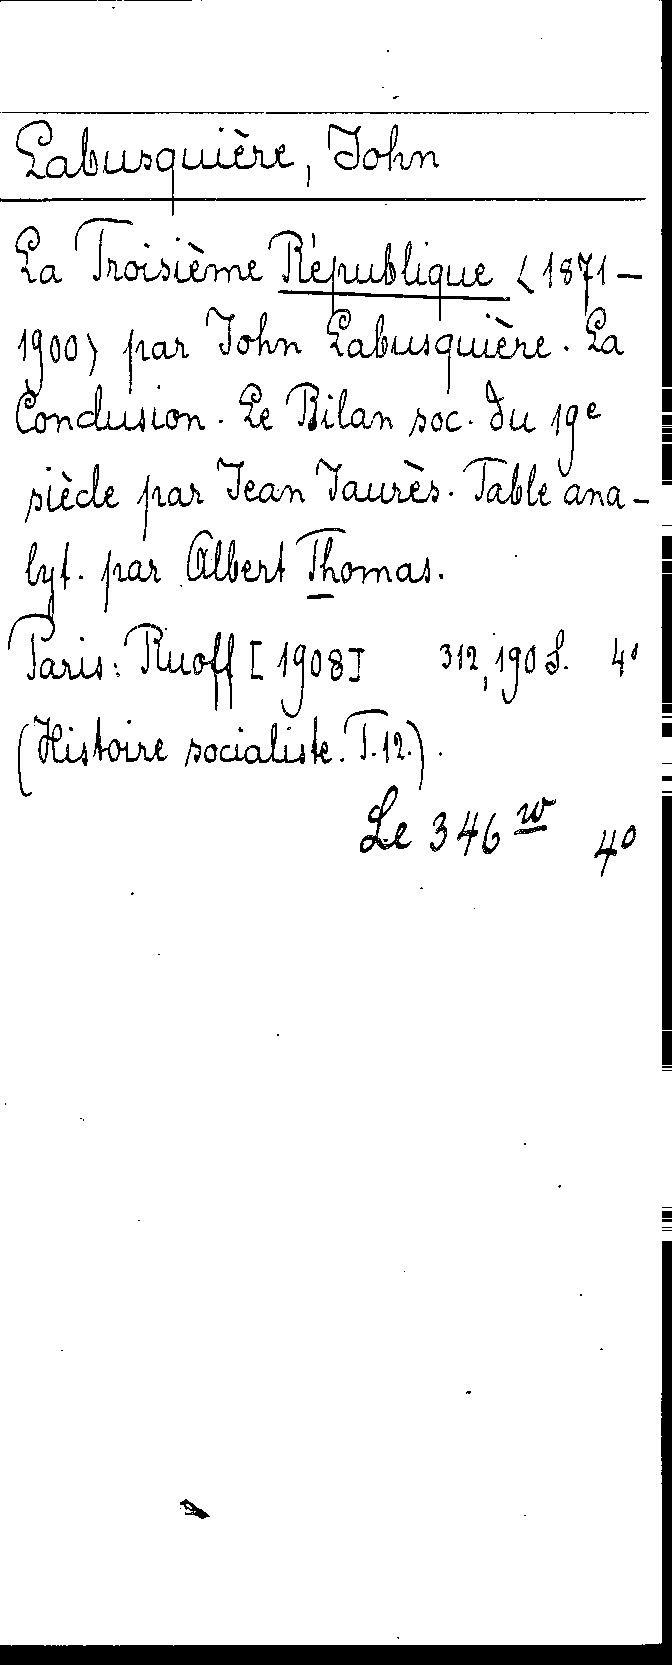 Labusquière, John
La Troisième République <1871-
1900> par John Labusquière. La
Conclusion. Le Bilan soc. du 19e
siècle par Jean Jaurès. Table ana-
lyt. par Albert Thomas.
Paris: Ruoff [1908] 312, 190 S. 4°
(Histoire socialiste. T. 12.).
Le 346 w 4°